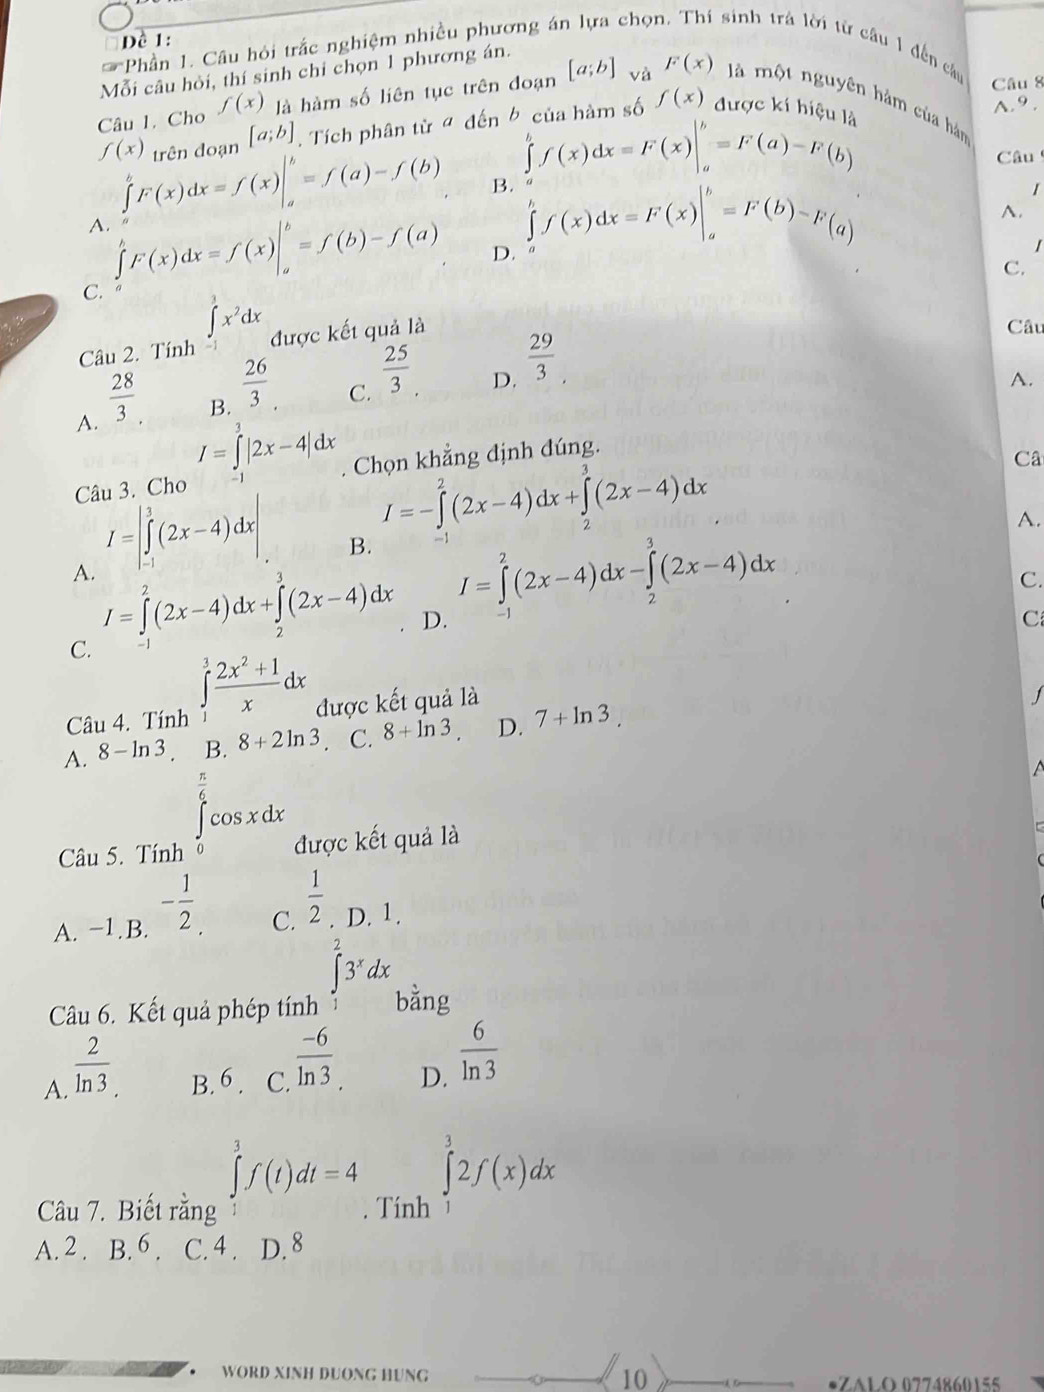 Dề 1:
☞Phần 1. Câu hỏi trắc nghiệm nhiều phương án lựa chọn. Thí sinh trả lời từ câu 1 đến câu
Mỗi câu hỏi, thí sinh chỉ chọn 1 phương án.
Câu 1. Cho f(x) là hàm số liên tục trên đoạn [a;b] và F(x) là một nguyên hàm của hàm
f(x) trên đoạn [a;b]. Tích phân từ a đến b của hàm số f(x) được kí hiệu là
A. ∫_a^b F(x)dx = f(x)|_a^b = f(a) − f(b). B. ∫_a^b f(x)dx = F(x)|_a^b = F(a) − F(b)
C. ∫_a^b F(x)dx = f(x)|_a^b = f(b) − f(a). D. ∫_a^b f(x)dx = F(x)|_a^b = F(b) − F(a).
Câu 2. Tính ∫_{-1}^3 x²dx được kết quả là
A. 28/3. B. 26/3. C. 25/3. D. 29/3.
Câu 3. Cho I = ∫_{-1}^3 |2x − 4|dx. Chọn khẳng định đúng.
A. I = |∫_{-1}^3 (2x − 4)dx|. B. I = −∫_{-1}^2 (2x − 4)dx + ∫_2^3 (2x − 4)dx.
C. I = ∫_{-1}^2 (2x − 4)dx + ∫_2^3 (2x − 4)dx. D. I = ∫_{-1}^2 (2x − 4)dx − ∫_2^3 (2x − 4)dx.
Câu 4. Tính ∫_1^3 (2x² + 1)/x dx được kết quả là
A. 8 − ln 3. B. 8 + 2 ln 3. C. 8 + ln 3. D. 7 + ln 3.
Câu 5. Tính ∫_0^{π/6} cos x dx được kết quả là
A. −1. B. −1/2. C. 1/2. D. 1.
Câu 6. Kết quả phép tính ∫_1^2 3^x dx bằng
A. 2/ln 3. B. 6. C. −6/ln 3. D. 6/ln 3
Câu 7. Biết rằng ∫_1^3 f(t)dt = 4. Tính ∫_1^3 2f(x)dx
A. 2. B. 6. C. 4. D. 8
Câu 8
A. 9.
Câu
I
A.
I
C.
Câu
A.
Câ
A.
C.
f
WORD XINH DUONG HUNG
10
•ZALO 0774860155